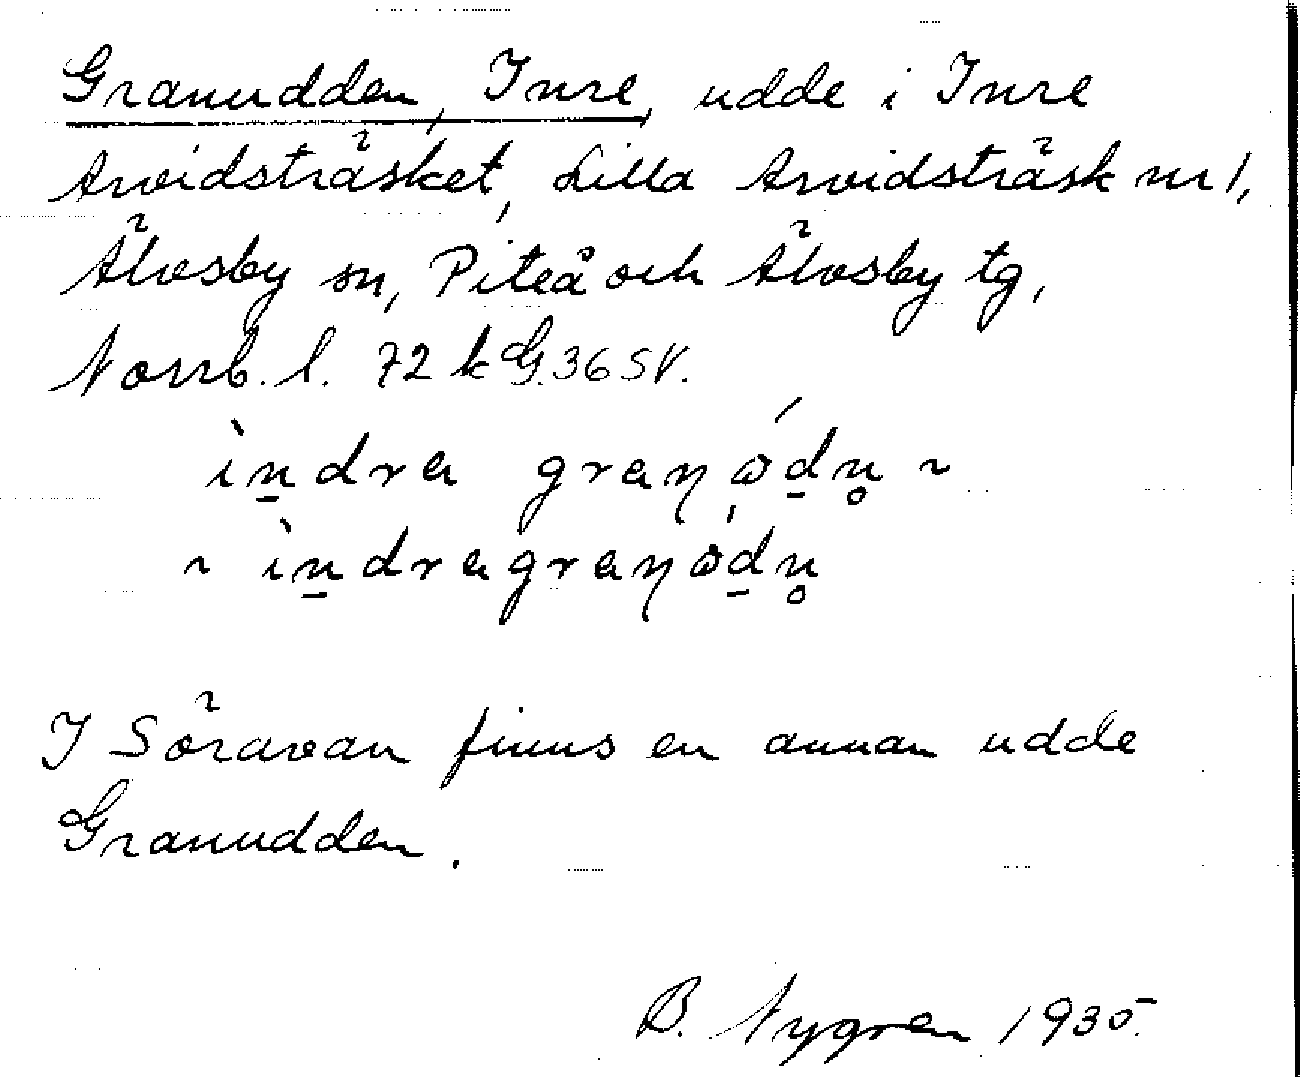 Granudden, Inre, udde i Inre
Arvidsträsket, Lilla Arvidsträsk nr 1,
Älvsby sn, Piteå och Älvsby tg,
Norrb. l. 72 k G.36 SV.
ìn̲dra graŋó̩d̲n̥ ~
~ ìn̲dragraŋó̍d̲n̥
I Söravan finns en annan udde
Granudden.
B. Nygren 1935.